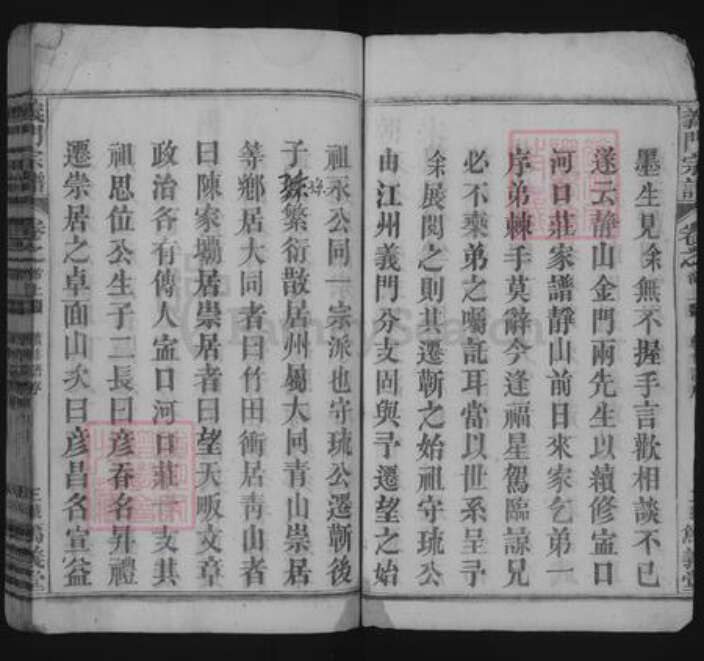 墨生見余無不握手言歡相談不已
遂云静山金門兩先生以續修宝口
河口莊家譜靜山前日來家乞弟一
序弟棘手莫辭今逢福星駕臨諒兄
必不棄弟之囑託耳當以世系呈予
余展閱之則其遷蘄之始祖守琉公
由江州義門分支固與予遷望之始
祖永公同一宗派也守琉公遷蘄後
子孫繁衍散居州屬大同青山崇居
等鄉居大同者曰竹田衝居靑山者
曰陳家壩居崇居者曰望天畈文章
政治各有傳人宝口河口莊一支其
祖思位公生子二長曰彦春名昇禮
遷崇居之卓面山矣曰彦昌名宣益
義門宗譜